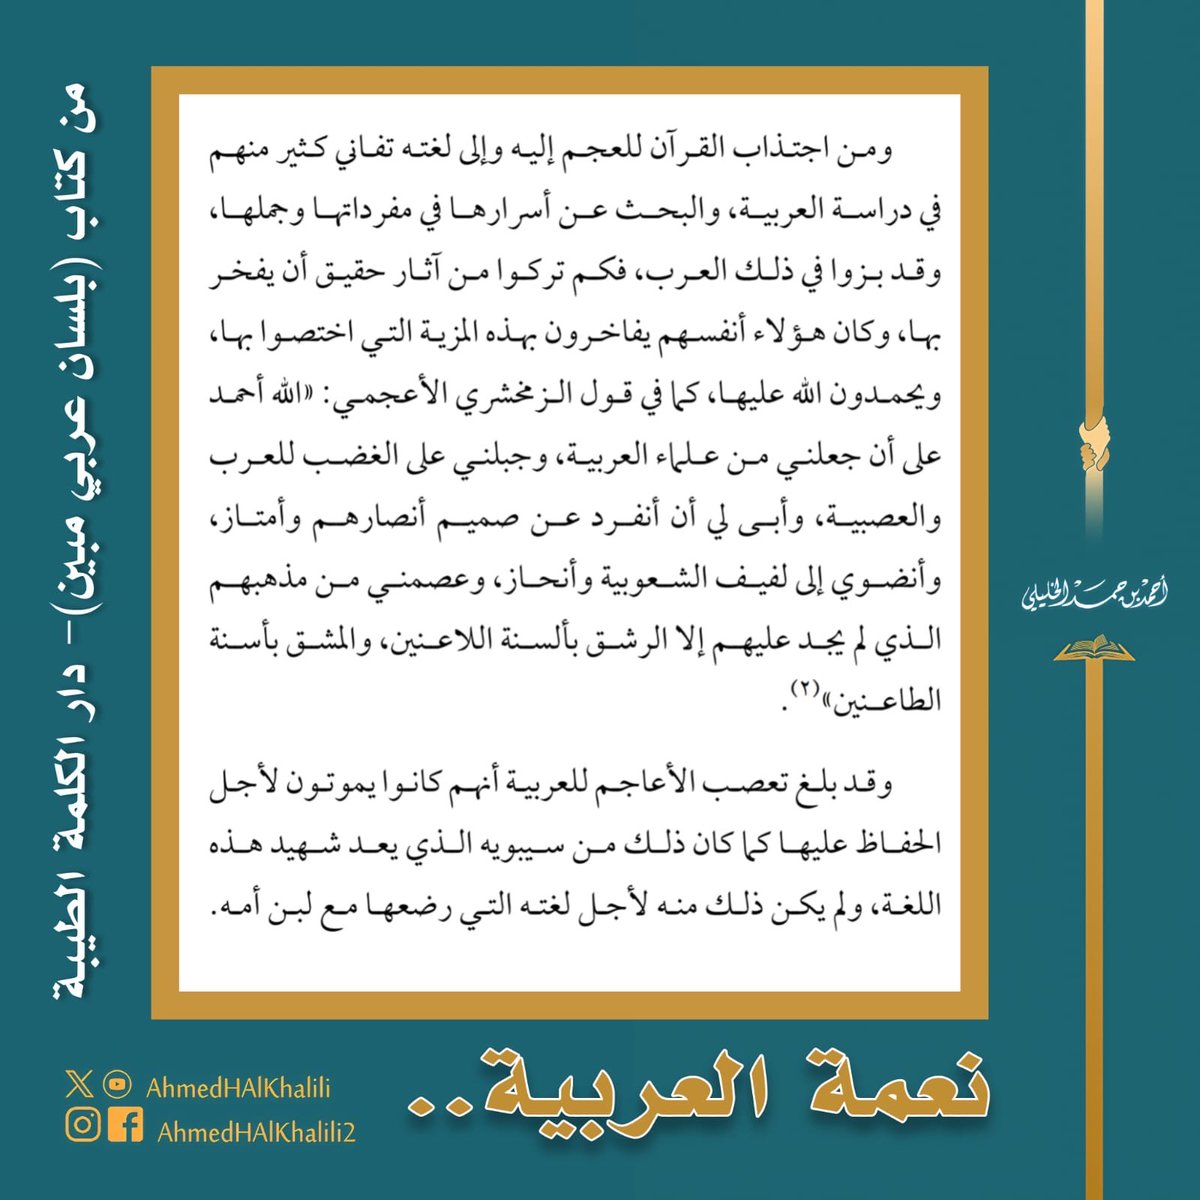 ومن اجتذاب القرآن للعجم إليه وإلى لغته تفاني كثير منهم
في دراسة العربية، والبحث عن أسرارها في مفرداتها وجملها،
وقد بزوا في ذلك العرب، فكم تركوا من آثار حقيق أن يفخر
بها، وكان هؤلاء أنفسهم يفاخرون بهذه المزية التي اختصوا بها،
ويحمدون الله عليها، كما في قول الزمخشري الأعجمي: «الله أحمد
على أن جعلني من علماء العربية، وجبلني على الغضب للعرب
والعصبية، وأبى لي أن أنفرد عن صميم أنصارهم وأمتاز،
وأنضوي إلى لفيف الشعوبية وأنحاز، وعصمني من مذهبهم
الذي لم يجد عليهم إلا الرشق بألسنة اللاعنين، والمشق بأسنة
الطاعنين»(٢).
وقد بلغ تعصب الأعاجم للعربية أنهم كانوا يموتون لأجل
الحفاظ عليها كما كان ذلك من سيبويه الذي يعد شهيد هذه
اللغة، ولم يكن ذلك منه لأجل لغته التي رضعها مع لبن أمه.
من كتاب (بلسان عربي مبين)- دار الكلمة الطيبة
أحمد بن حمد الخليلي
نعمة العربية..
AhmedHAlKhalili
AhmedHAlKhalili2